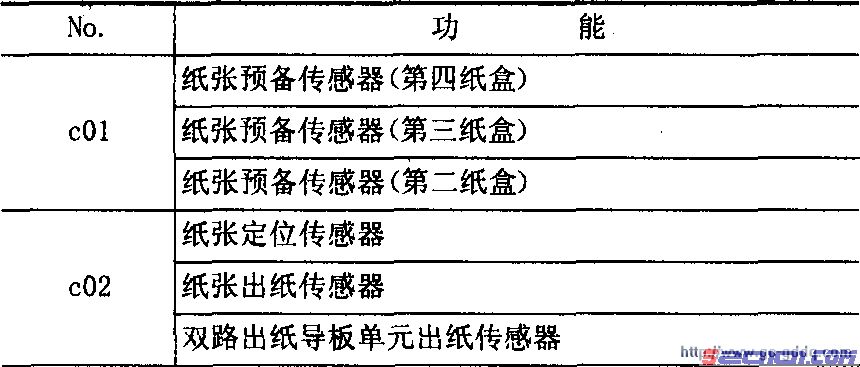 No. 功 能
c01
纸张预备传感器(第四纸盒)
纸张预备传感器(第三纸盒)
纸张预备传感器(第二纸盒)
c02
纸张定位传感器
纸张出纸传感器
双路出纸导板单元出纸传感器